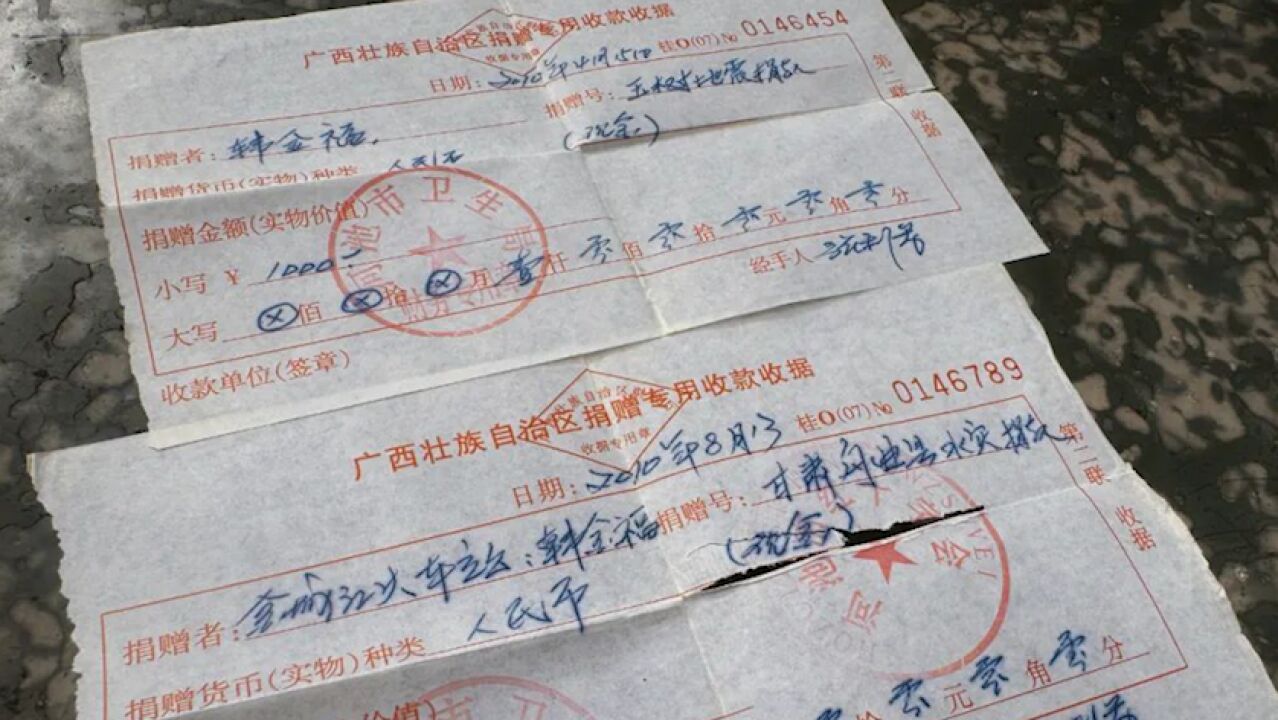 广西壮族自治区捐赠专用收款收据
收据专用章
日期: 2010年4月15日 桂O(07)No 0146454
第二联 收据
捐赠者: 韩金福 捐赠号: 玉树地震捐款
(现金)
捐赠货币(实物)种类 人民币
捐赠金额(实物价值)
小写 ¥ 1000
大写 ⊗佰⊗拾⊗万壹仟零佰零拾零元零角零分
收款单位(签章) 经手人
河池市卫生局
财务专用章
广西壮族自治区捐赠专用收款收据
收据专用章
日期: 2010年8月13 桂O(07)No 0146789
第二联 收据
捐赠者: 金城江火车站: 韩金福 捐赠号: 甘肃舟曲洪水灾捐款
(现金)
捐赠货币(实物)种类 人民币
价值)
零元零角零分
河池
会
市卫生